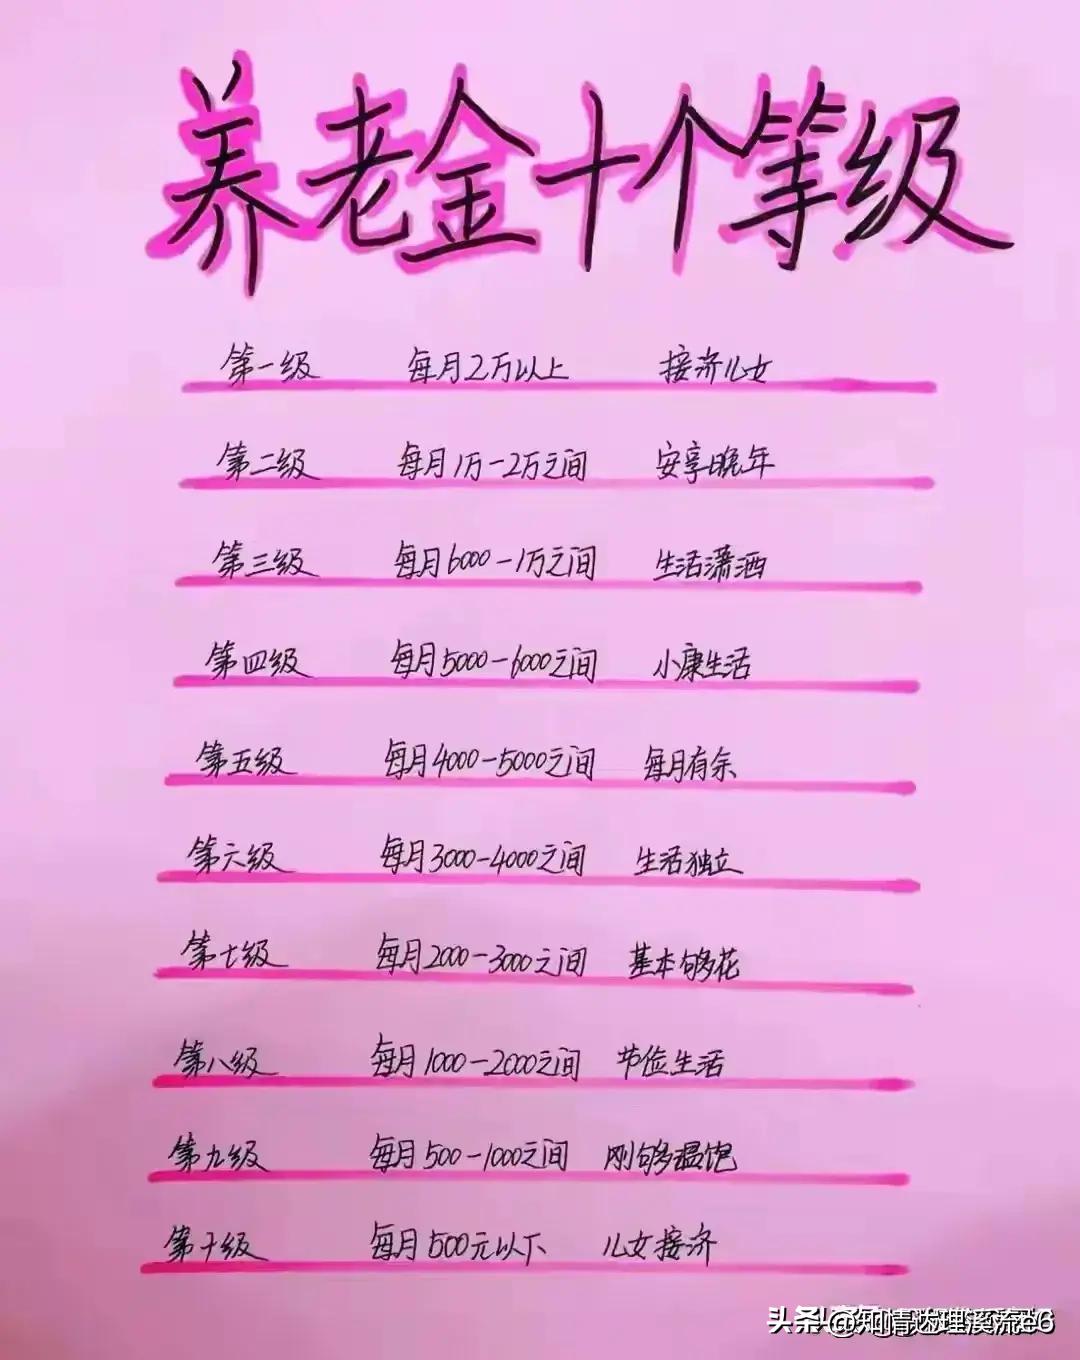 养老金十个等级
第一级 每月2万以上 接济儿女
第二级 每月1万-2万之间 安享晚年
第三级 每月6000-1万之间 生活潇洒
第四级 每月5000-6000之间 小康生活
第五级 每月4000-5000之间 每月有余
第六级 每月3000-4000之间 生活独立
第七级 每月2000-3000之间 基本够花
第八级 每月1000-2000之间 节俭生活
第九级 每月500-1000之间 刚够温饱
第十级 每月500元以下 儿女接济
头条 @知情达理溪流e6